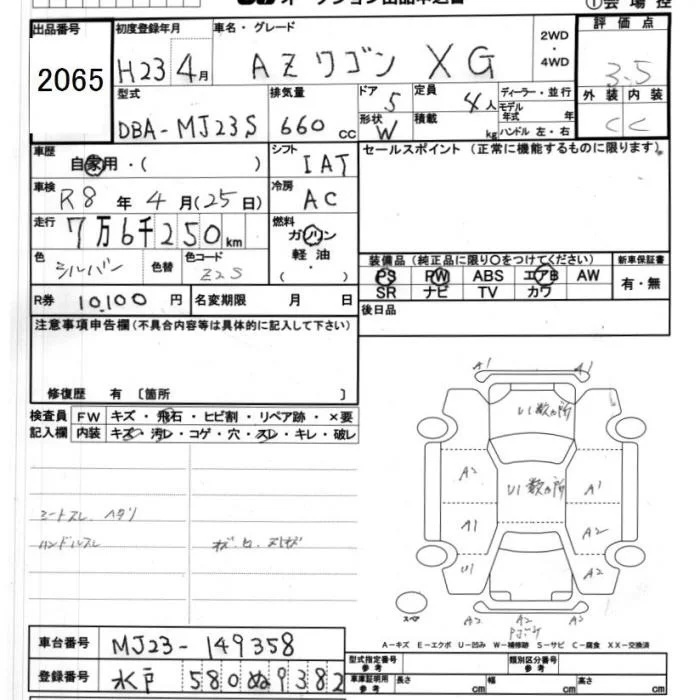 オークション出品申込書 ①会場控
出品番号 初度登録年月 車名・グレード 2WD・4WD 評価点
2065 H23 4月 AZワゴン XG 3.5
型式 排気量 ドア 5 定員 4人 ディーラー・並行 外装 内装
DBA-MJ23S 660cc 形状 W 積載 kg モデル年式 年 ハンドル 左・右 C C
車歴 自家用・( ) シフト IAT セールスポイント(正常に機能するものに限ります)
車検 R8年4月(25日) 冷房 AC
走行 7万6千250km 燃料 ガソリン・軽油・( )
色 シルバー 色替 色コード Z2S 装備品(純正品に限り○をつけてください) 新車保証書
PS PW ABS エアB AW 有・無
R券 10,100円 名変期限 月 日 SR ナビ TV カワ
注意事項申告欄(不具合内容等は具体的に記入して下さい) 後日品
修復歴 有 〔箇所 〕
検査員 FW キズ・飛石・ヒビ割・リペア跡・×要
記入欄 内装 キズ・汚レ・コゲ・穴・スレ・キレ・破レ
A1 A1
U1 数ヵ所
A2 U1 数ヵ所 A1
シートスレ、ヘタリ
A1 A2
ハンドルスレ
U1 A2
スペア A2 A2 A2
A-キズ E-エクボ U-凹み W-補修跡 S-サビ C-腐食 XX-交換済
車台番号 MJ23-149358
型式指定番号 類別区分番号
登録番号 水戸 580 ぬ 9382
車庫証明用参考 長さ cm 幅 cm 高さ cm